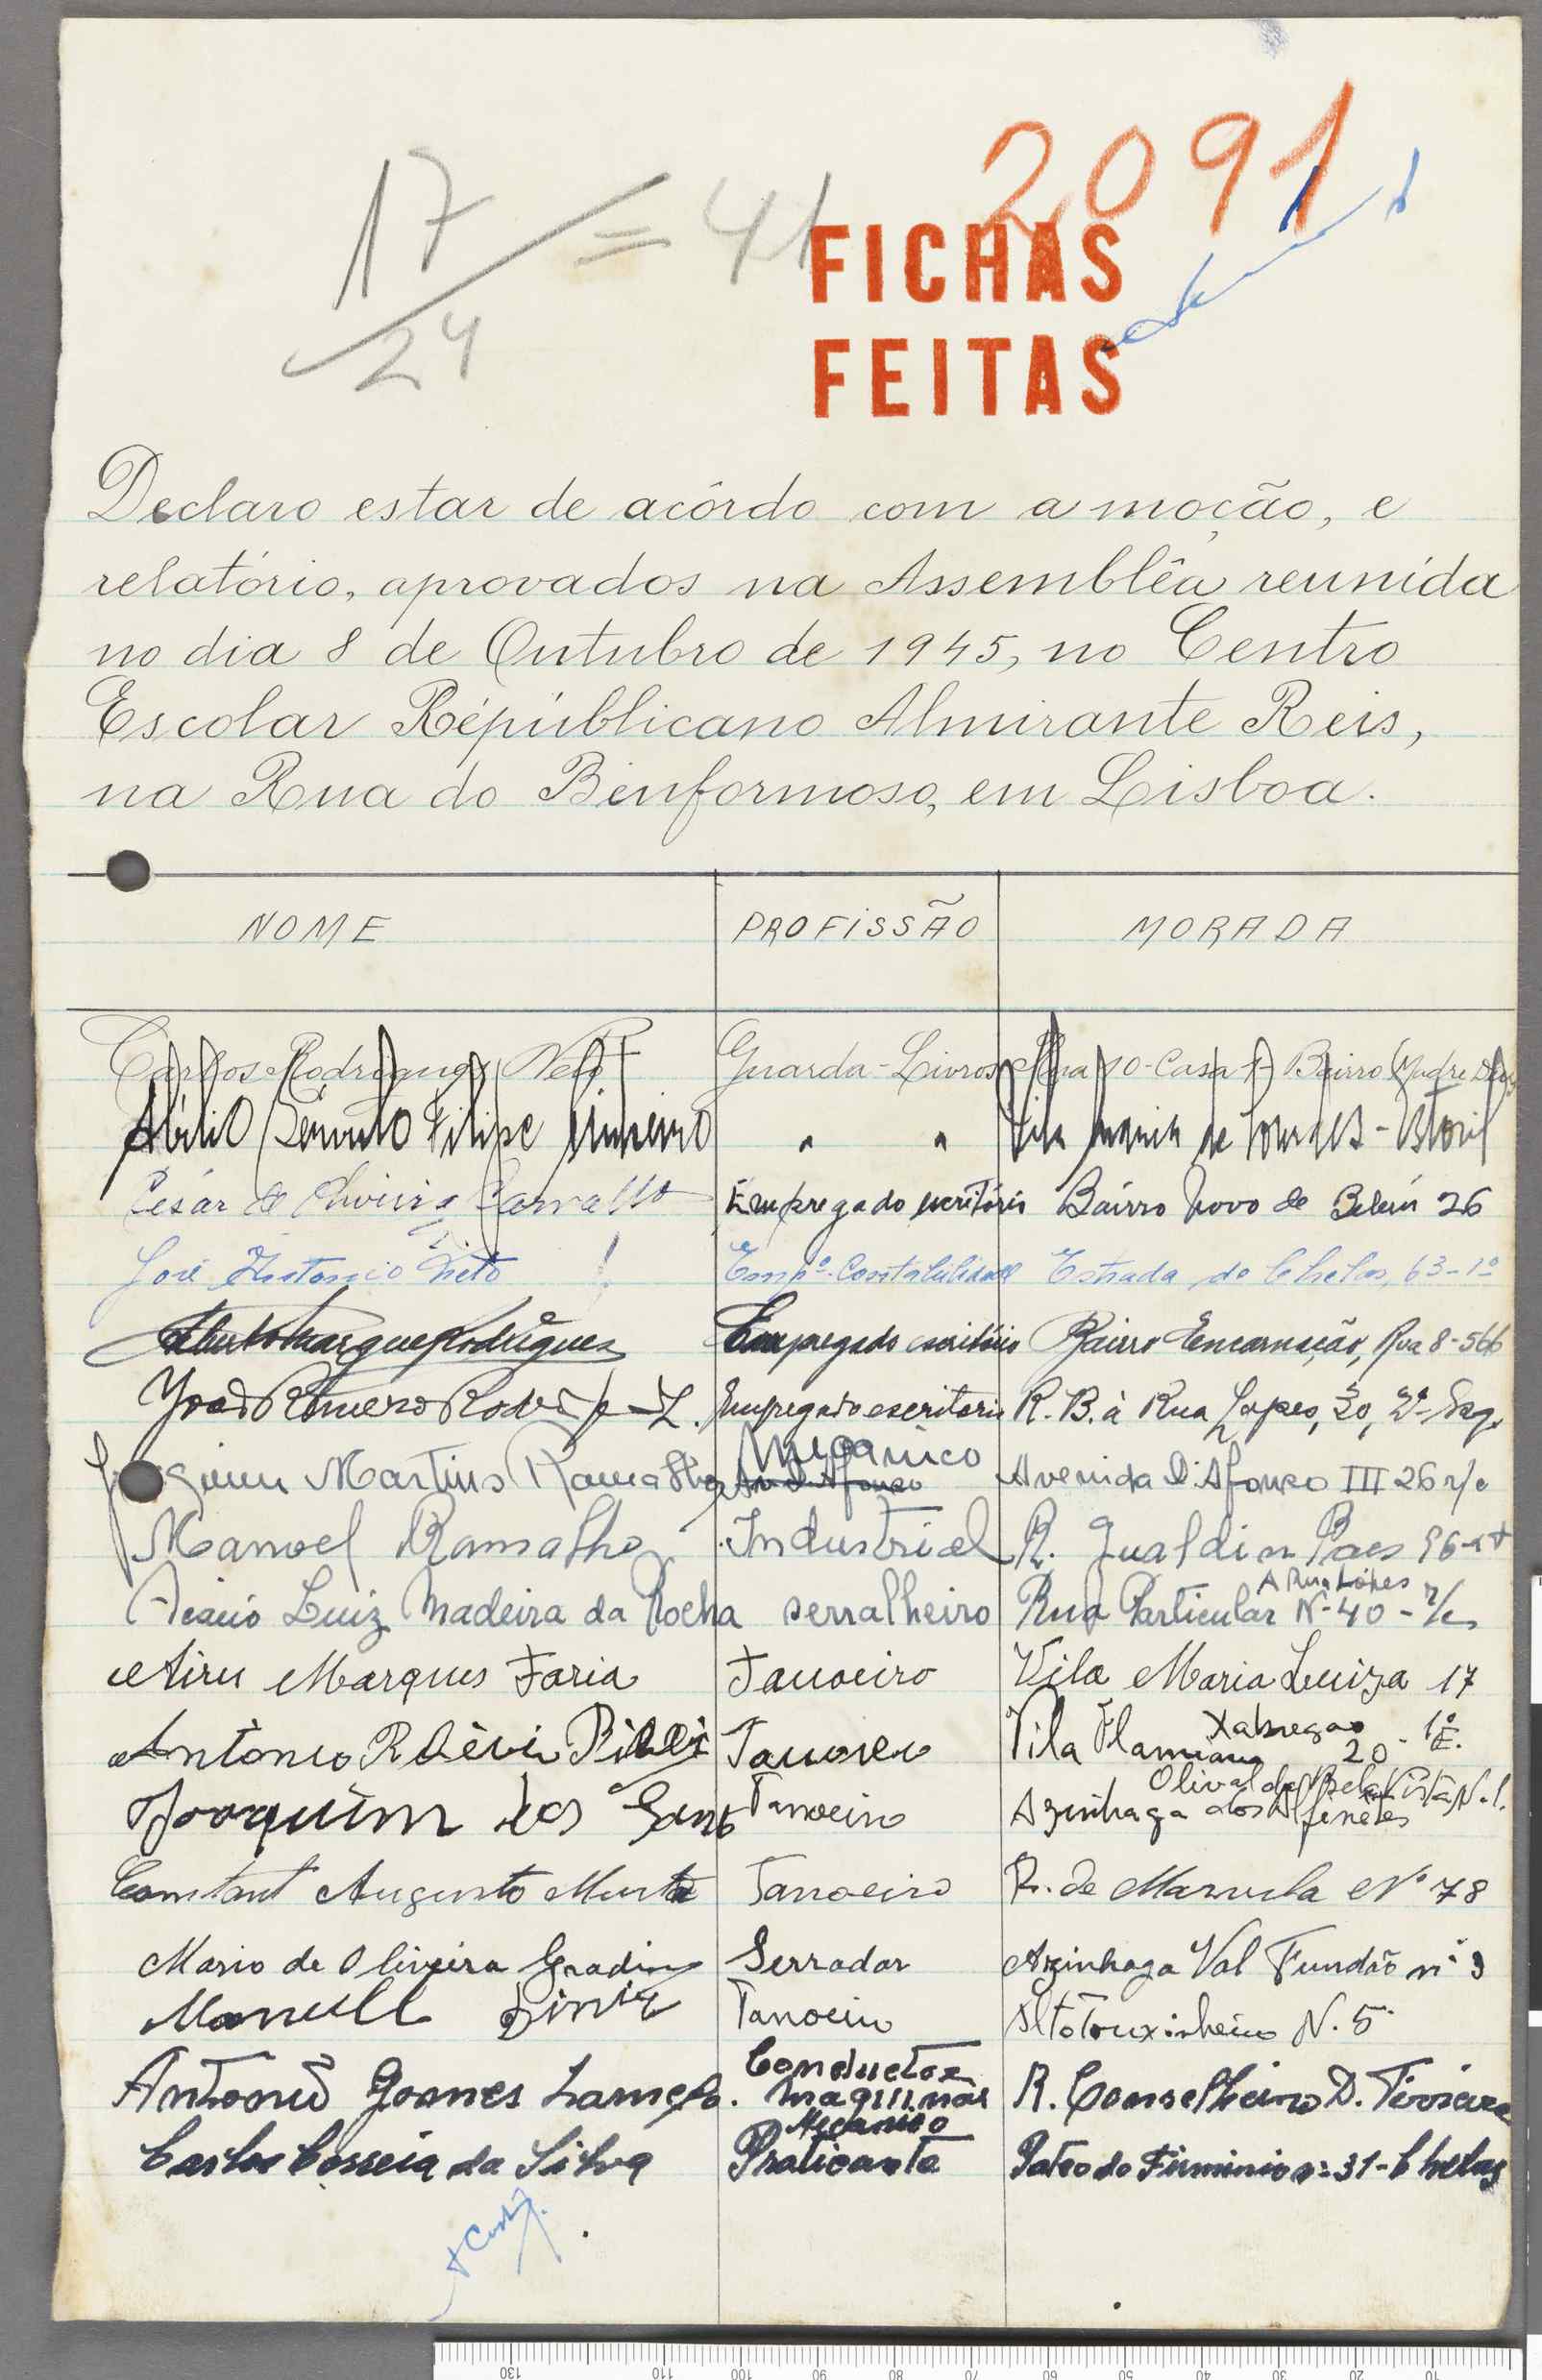 2091
17 = 41
24
FICHAS
FEITAS
Declaro estar de acôrdo com a moção, e
relatório, aprovados na Assemblêa reunida
no dia 8 de Outubro de 1945, no Centro
Escolar Républicano Almirante Reis,
na Rua do Benformoso, em Lisboa.
NOME PROFISSÃO MORADA
Carlos Rodrigues Neto Guarda-Livros Rua 10-Casa Bairro Madre Deus
Abílio Filipe Pinheiro " " Vila Maria de Lourdes - Estoril
César de Oliveira Carvalho Empregado escritório Bairro Novo de Belém 26
José Antonio Neto Empº. Contabilidade Estrada de Chelas, 63-1º
Alberto Marques Rodrigues Empregado escritório Bairro Encarnação, Rua 8-566
João Romero Empregado escritorio R. B. à Rua Lopes, 30, 2º Esq.
Joaquim Martins Ramalho Mecanico Avenida D. Afonso III 26 r/c
Manoel Ramalho Industrial R. Gualdim Paes
Luiz Madeira da Rocha serralheiro Rua Particular A Rua Lopes Nº 40 - r/c
Marques Faria Tanoeiro Vila Maria Luiza 17
António Tanoeiro Vila Flamiana Xabregas 20 - 1º E.
Joaquim dos Tanoeiro Azinhaga dos Alfinetes Olival da Bela Vista N. 1.
Augusto Tanoeiro R. de Marvila Nº 78
Mario de Oliveira Serrador Azinhaga Val Fundão nº 9
Manuel Diniz Tanoeiro Alto Touxinheiro N. 5
António Gomes Lamego. Conductor Maquinas R. Conselheiro D.
Carlos Correia da Silva Mecanico Praticante Pateo do Firminio nº 31 - Chelas